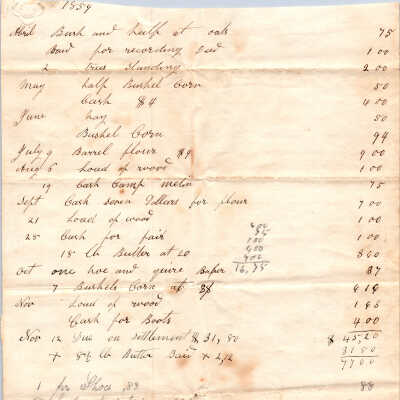 1859
April Bush and half at oats 75
Paid for recording Deed 1 00
2 trees standing 2 00
May half Bushel Corn 50
Cash $4 4 00
June hay 50
Bushel Corn 94
July 9 Barrel flour $9 9 00
Aug 6 Load of wood 1 00
19 Cash Camp meetin 75
Sept Cash seven Dollars for flour 7 00
21 Load of wood 1 00
28 Cash for fair 1 00
18 lb Butter at 20 3 60
Oct one hoe and 87
7 Bushels Corn at
Nov Load of wood
Cash for Boots 4 00
Nov 12 Due on settlement $31,80 $ 45,20
+ lb Butter Paid + 2,12 31 80
77 00
1 for Shoes ,88 88